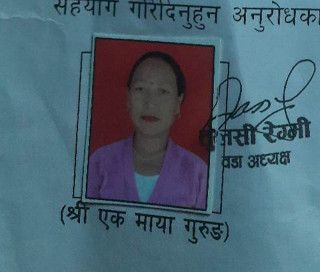 सहयोग गरिदिनुहुन अनुरोधका
सी रेग्मी
वडा अध्यक्ष
(श्री एक माया गुरुङ)